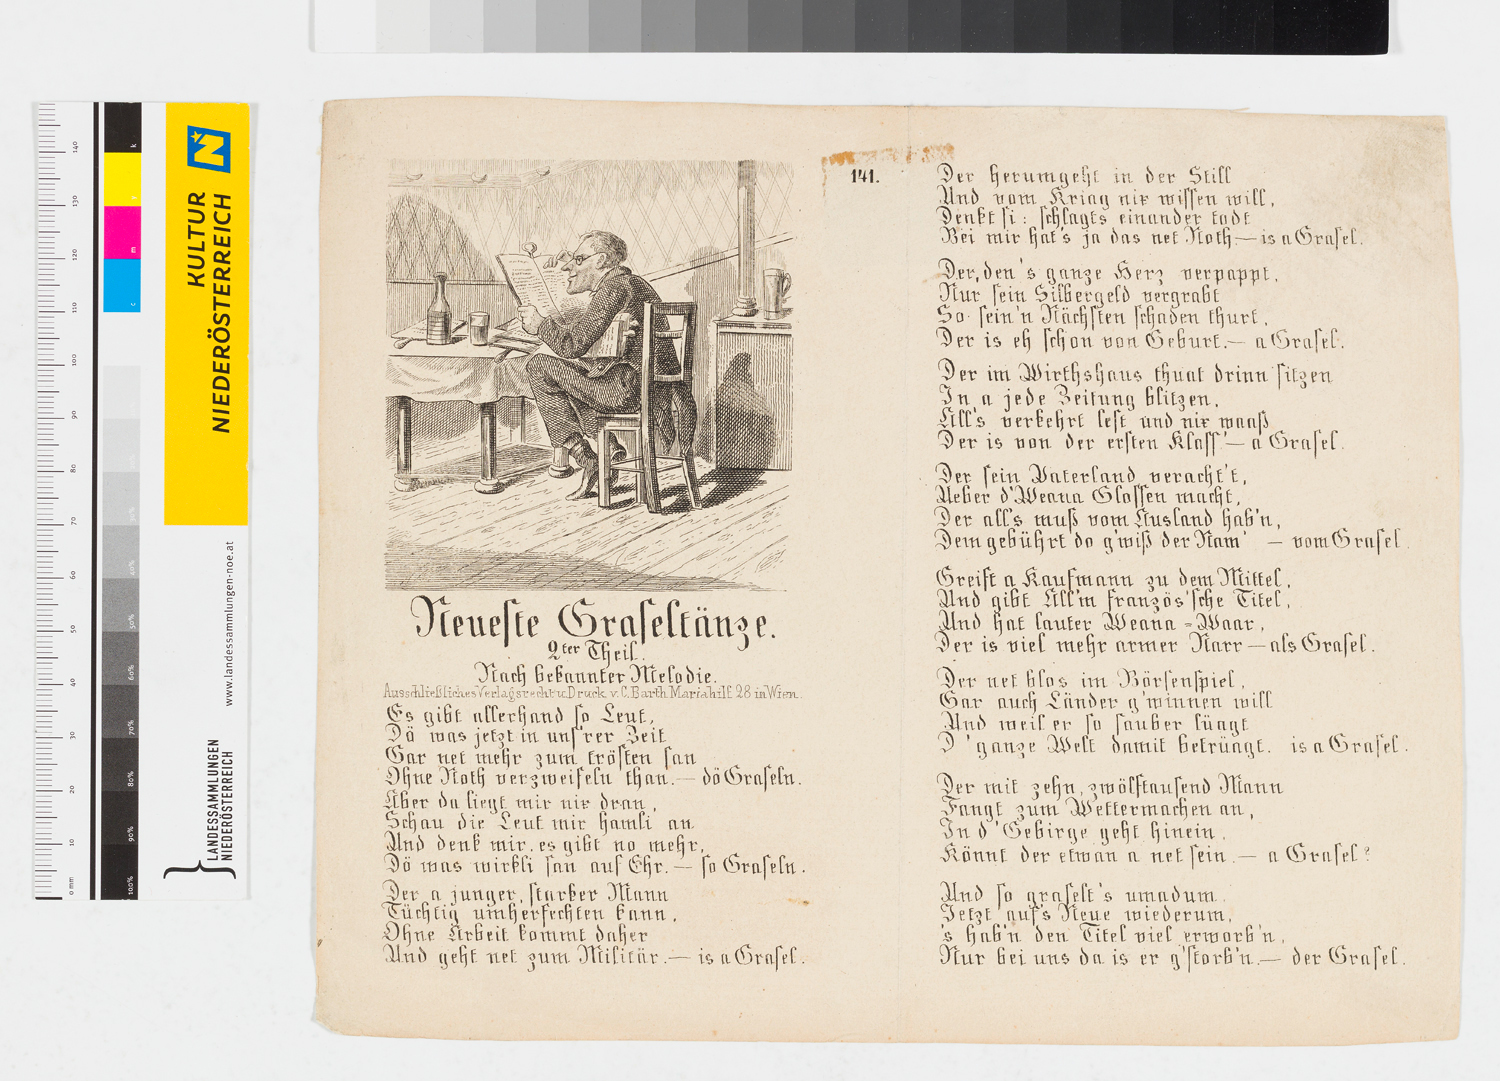 141.
Neueste Graseltänze.
2ter Theil.
Nach bekannter Melodie.
Ausschließliches Verlagsrecht u. Druck v. C. Barth Mariahilf 28 in Wien.
Es gibt allerhand so Leut,
Dö was jetzt in uns'rer Zeit
Gar net mehr zum trösten san
Ohne Noth verzweifeln than.— dö Graseln.
Aber da liegt mir nix dran,
Schau die Leut mir hamli an
Und denk mir, es gibt no mehr,
Dö was wirkli san auf Ehr.— so Graseln.
Der a junger, starker Mann
Tüchtig umherfechten kann,
Ohne Arbeit kommt daher
Und geht net zum Militär.— is a Grasel.
Der herumgeht in der Still
Und vom Kriag nix wissen will,
Denkt si: schlagts einander todt
Bei mir hat's ja das net Noth— is a Grasel.
Der, den's ganze Herz verpappt,
Nur sein Silbergeld vergrabt
So sein'n Nächsten schaden thurt,
Der is eh schon von Geburt.— a Grasel.
Der im Wirthshaus thuat drinn sitzen
In a jede Zeitung blitzen,
All's verkehrt lest und nix waaß
Der is von der ersten Klass'— a Grasel.
Der sein Vaterland veracht't,
Ueber d'Weana Glossen macht,
Der all's muß vom Ausland hab'n,
Dem gebührt do g'wiß der Nam' — vom Grasel.
Greift a Kaufmann zu dem Mittel,
Und gibt All'm französ'sche Titel,
Und hat lauter Weana-Waar,
Der is viel mehr armer Narr— als Grasel.
Der net blos im Börsenspiel,
Gar auch Länder g'winnen will
Und weil er so sauber lüagt
D'ganze Welt damit betrüagt. is a Grasel.
Der mit zehn, zwölftausend Mann
Fangt zum Wettermachen an,
In d'Gebirge geht hinein,
Könnt der etwan a net sein.— a Grasel?
Und so graselt's umadum,
Jetzt auf's Neue wiederum,
's hab'n den Titel viel erworb'n,
Nur bei uns da is er g'storb'n.— der Grasel.
KULTUR
NIEDERÖSTERREICH
www.landessammlungen-noe.at
LANDESSAMMLUNGEN
NIEDERÖSTERREICH